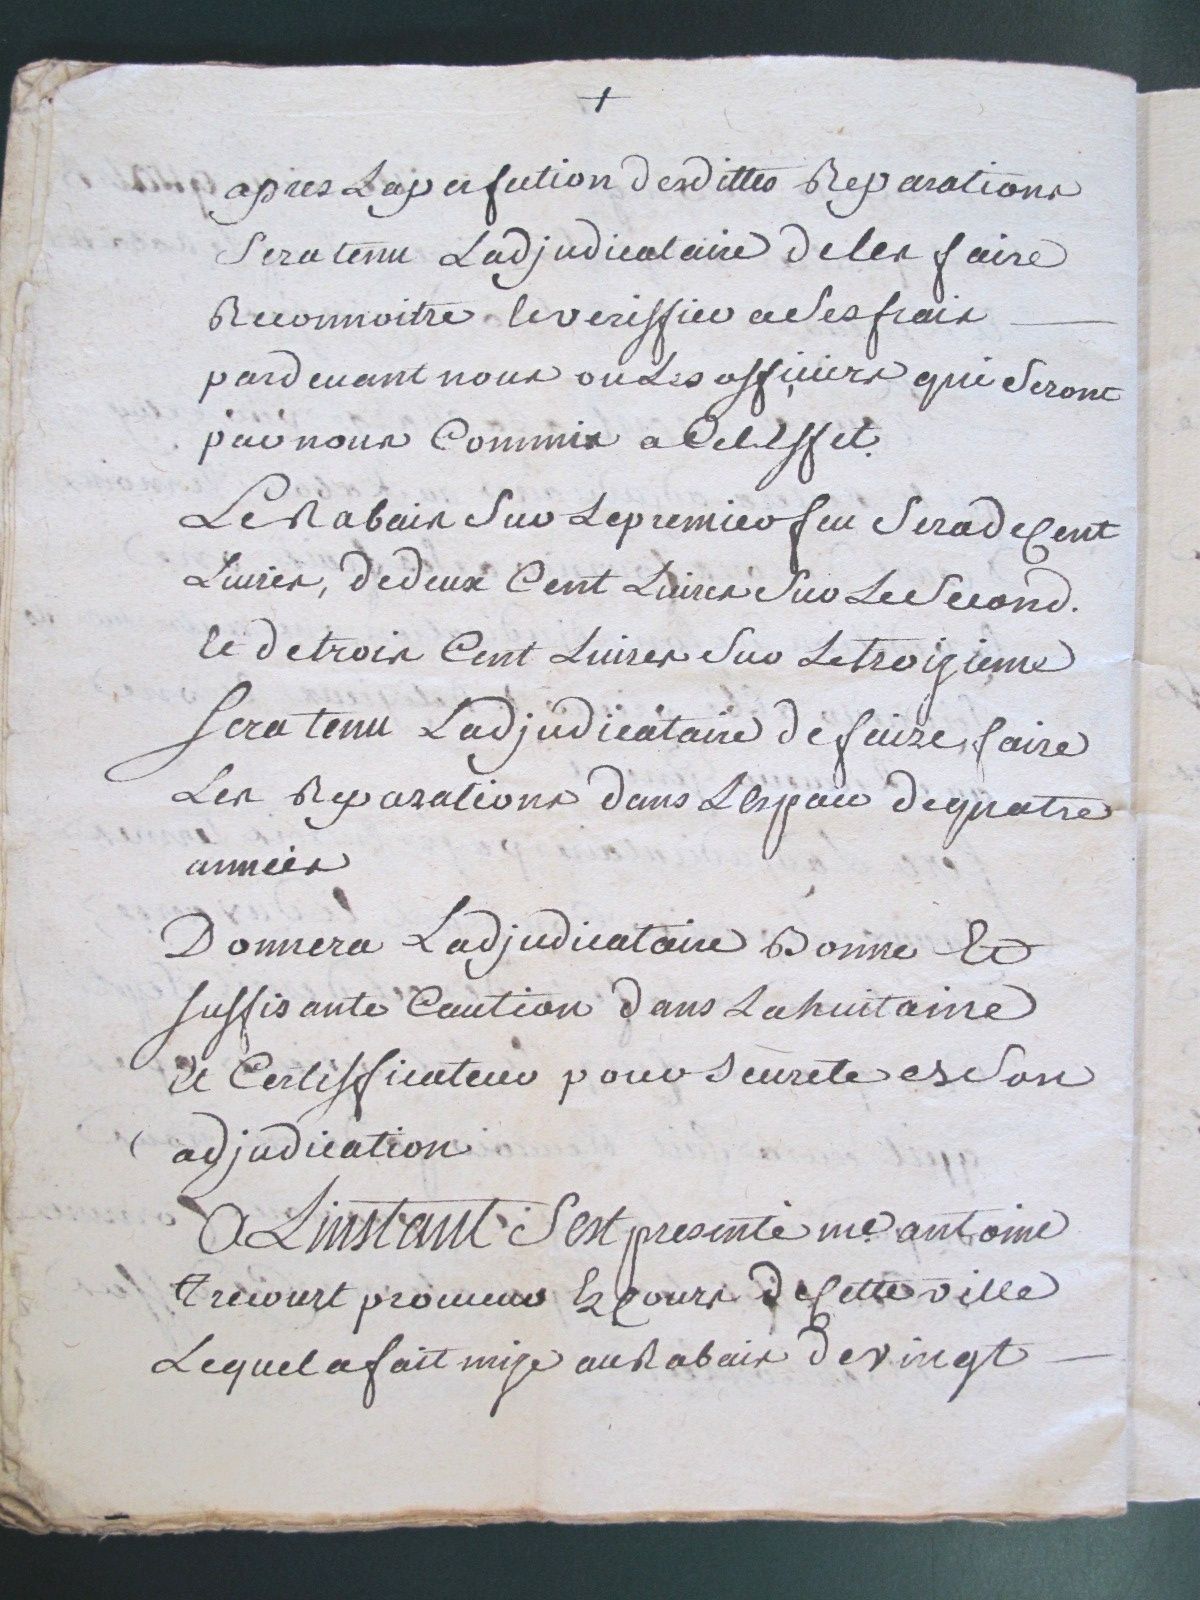 +
apres La perfection desdittes Reparations
Sera tenu Ladjudicataire de les faire
Reconnoitre et veriffier a Ses frais
pardevant nous ou Les officiers qui Seront
par nous Commis a Cet Effet.
Le Rabais Sur Le premier feu Sera de Cent
Livres, de deux Cent Livres Sur Le Second.
et de trois Cent Livres Sur Le troizieme
Sera tenu Ladjudicataire de faire, faire
Les Reparations dans Lespace de quatre
années
Donnera Ladjudicataire Bonne Et
suffisante Caution dans La huitaine
et Certifficateur pour Seureté de Son
adjudication
A Linstant S'est presenté me. antoine
trecourt procureur Es Cours de Cette ville
Lequel a fait mize au Rabais de vingt